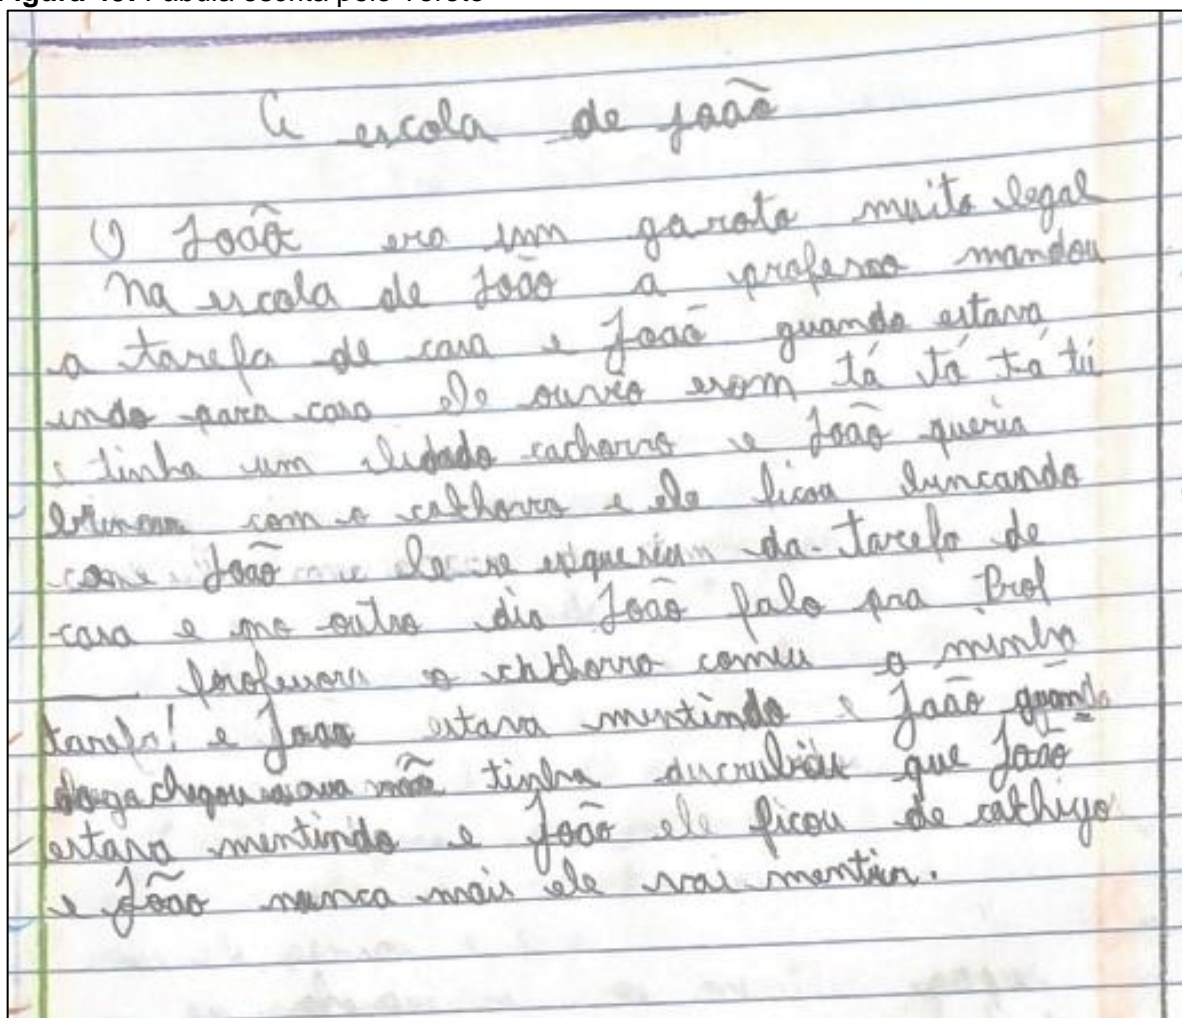 A escola de joão
O João era um garoto muito legal
na escola de João a professora mandou
a tarefa de casa e João quando estava
indo para casa ele ouvio eram tá tá tá tú
e tinha um cachorro e João queria
brincar com o cathorro e ele ficou brincando
e João ele se esqueceram da tarefa de
casa e no outro dia João falo pra Prof
professora o cathorro comeu a minha
tarefa! e João estava mentindo e João quando
chegou mãe tinha que João
estava mentindo e João ele ficou de cathigo
e João nunca mais ele vai mentir.